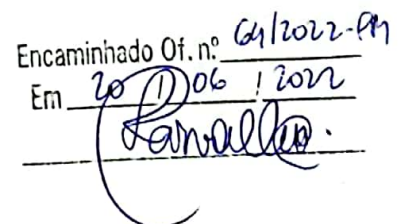 Encaminhado Of. n.º 64/2022-PM
Em 20 / 06 / 2022
Carvalho.